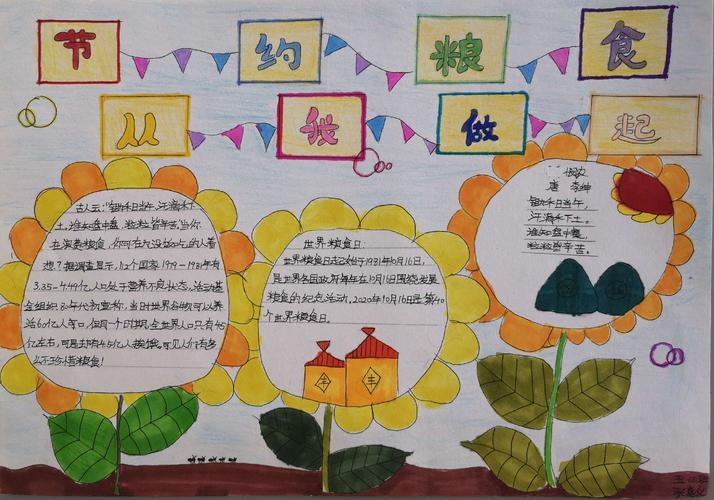 节约粮食
从我做起
古人云:"锄禾日当午,汗滴禾下
土,谁知盘中餐,粒粒皆辛苦。"当你
在浪费粮食,你可在为没饭吃的人着
想?据调查显示,112个国家1979—1981年有
3.35—4.49亿人口处于营养不良状态。活动基
金组织80年代初宣称,当时世界谷物可以养
活60亿人口,但同一个时期,全世界人口只有45
亿左右,可是却有4.5亿人挨饿。可见人们有多
么不珍惜粮食!
世界粮食日:
世界粮食日起始于1981年10月16日,
是世界各国政府每年在10月16日围绕发展
粮食的纪念活动,2020年10月16日是第40
个世界粮食日。
丰 丰
悯农
唐 李绅
锄禾日当午,
汗滴禾下土。
谁知盘中餐,
粒粒皆辛苦。
五